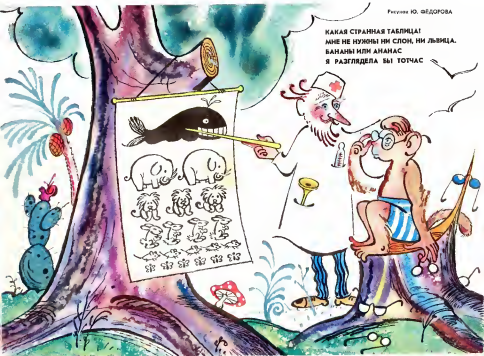 Рисунок Ю. ФЁДОРОВА
КАКАЯ СТРАННАЯ ТАБЛИЦА!
МНЕ НЕ НУЖНЫ НИ СЛОН, НИ ЛЬВИЦА.
БАНАНЫ ИЛИ АНАНАС
Я РАЗГЛЯДЕЛА БЫ ТОТЧАС